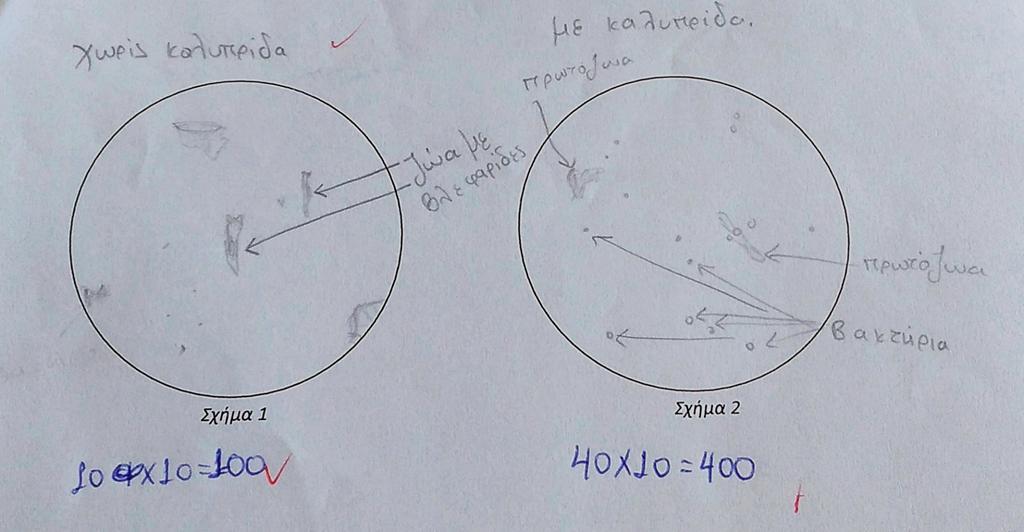 χωρίς καλυπρίδα
με καλυπρίδα.
πρωτόζωα
ζώα με
βλεφαρίδες
πρωτόζωα
Βακτύρια
Σχήμα 1
Σχήμα 2
10 x10=100
40x10=400